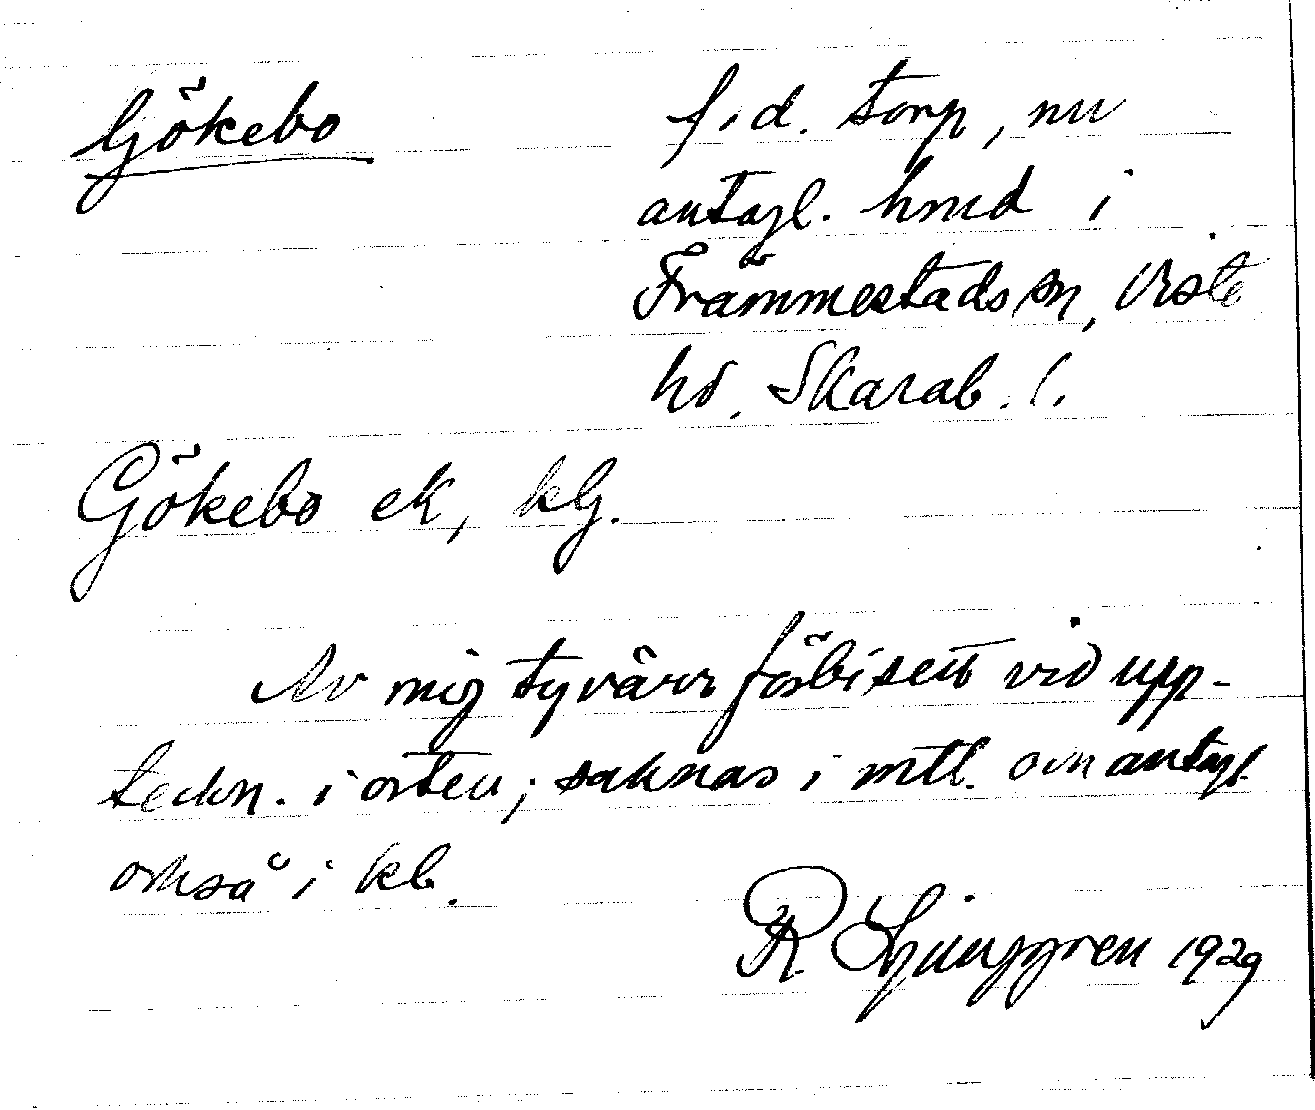 Gökebo f.d. torp, nu
antagl. hmd i
Främmestads sn, Viste
hd. Skarab. l.
Gökebo ek, kG.
Av mig tyvärr förbisett vid upp-
teckn. i orten; saknas i mtl. och antagl.
också i kb.
R Ljunggren 1929